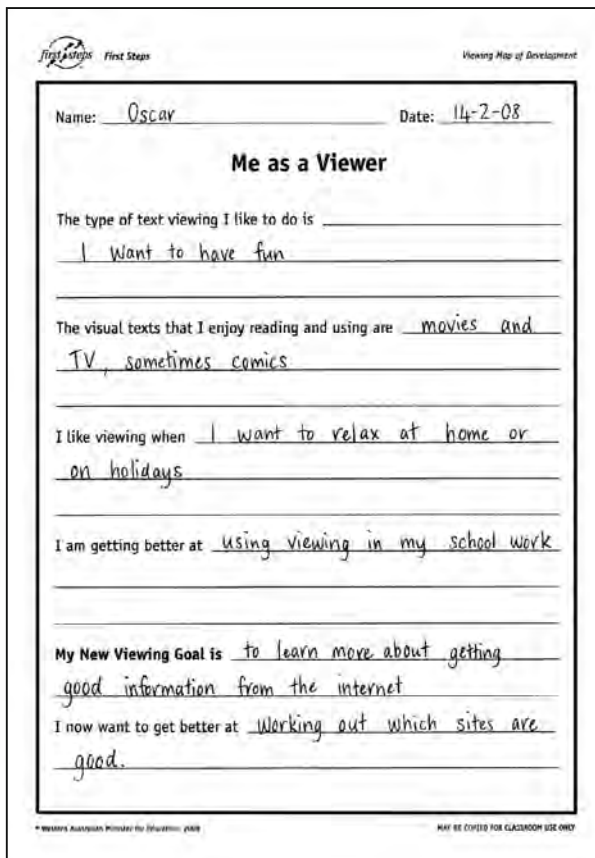 first steps First Steps Viewing Map of Development
Name: Oscar Date: 14-2-08
Me as a Viewer
The type of text viewing I like to do is
I want to have fun
The visual texts that I enjoy reading and using are movies and
TV, sometimes comics
I like viewing when I want to relax at home or
on holidays
I am getting better at using viewing in my school work
My New Viewing Goal is to learn more about getting
good information from the internet
I now want to get better at working out which sites are
good.
Western Australian Minister for Education MAY BE COPIED FOR CLASSROOM USE ONLY